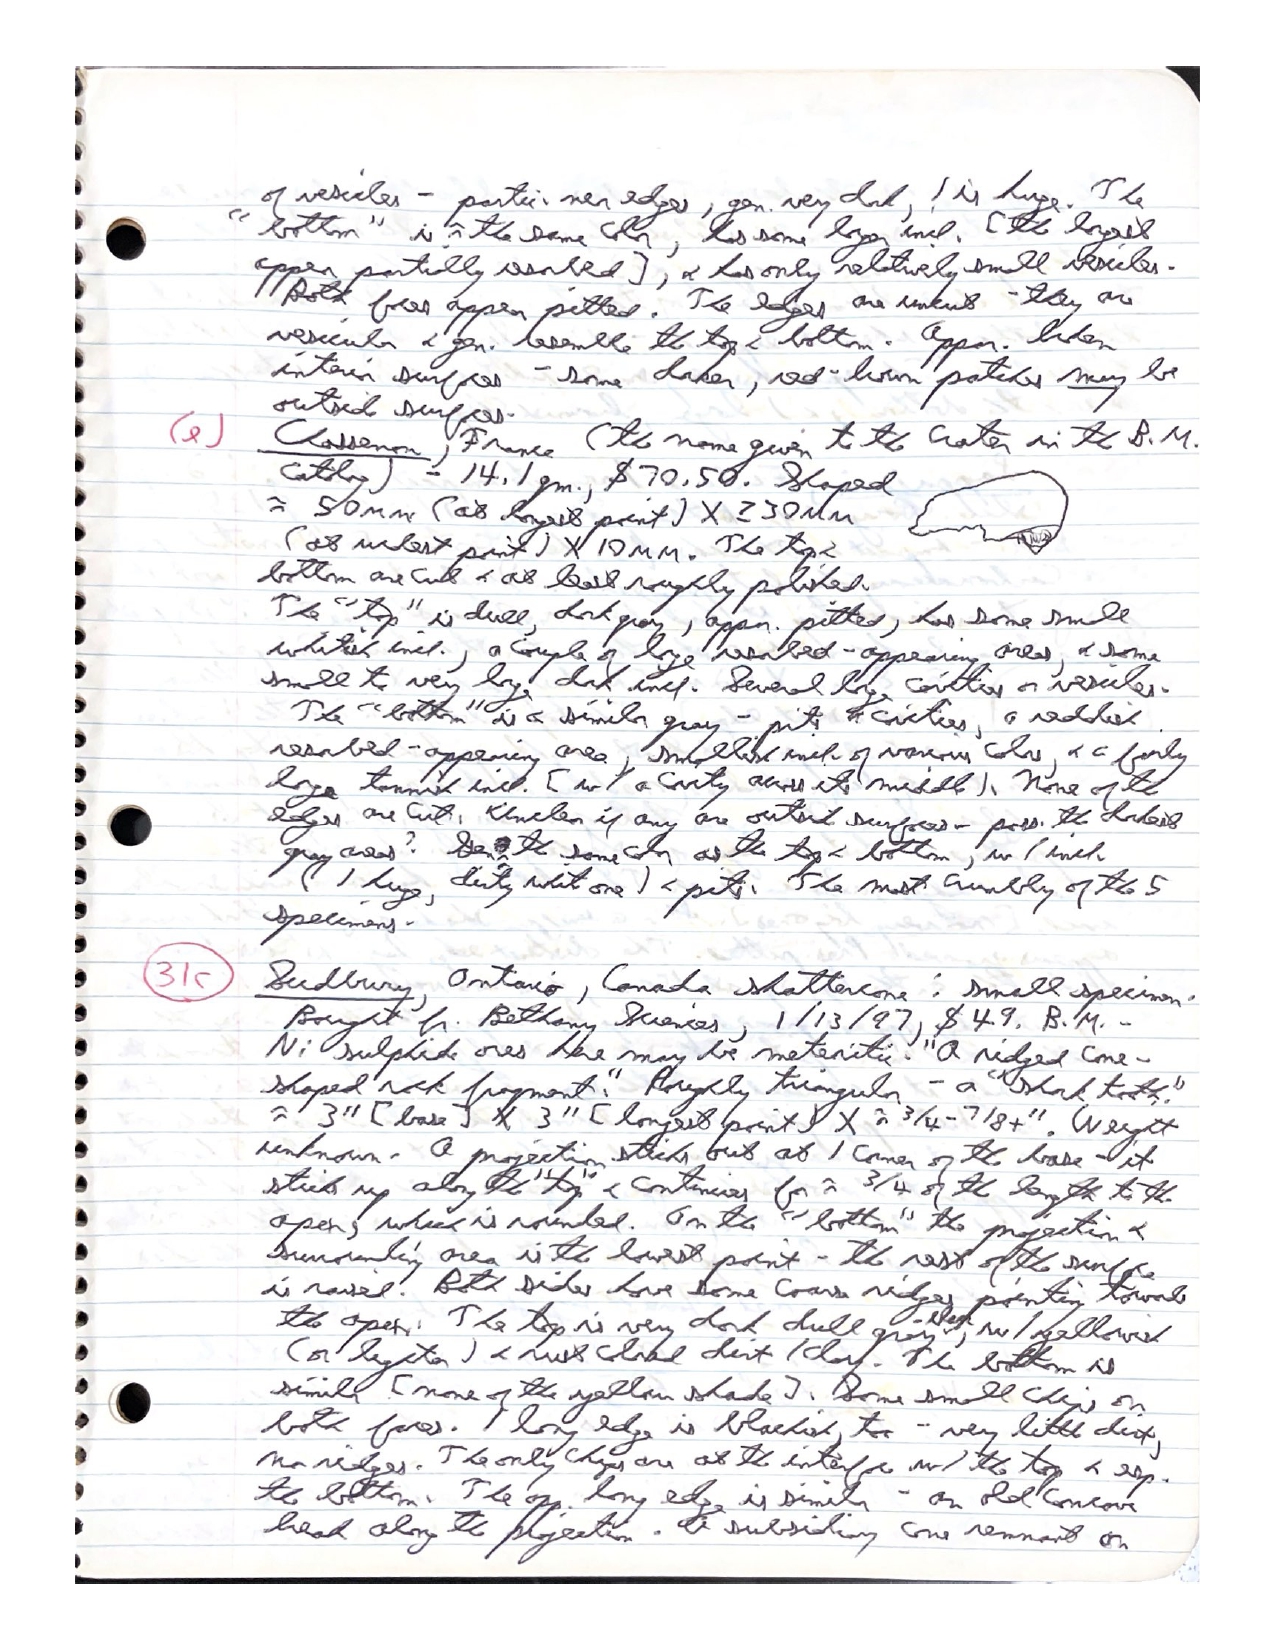 of vesicles - partic. near edges, gen. very dark, 1 is huge. The
"bottom" is ≈ the same color, has some large incl. [the largest
appear partially resorbed], & has only relatively small vesicles.
Both faces appear pitted. The edges are uncut - they are
vesicular & gen. resemble the top & bottom. Appar. broken
interior surfaces - some darker, red-brown patches may be
outside surfaces.
(e) Chassenon, France (the name given to the crater in the B.M.
Catalog) - 14.1 gm., $70.50. Shaped
≈ 50mm (at longest point) X ≥30mm
(at widest point) X 10mm. The top &
bottom are cut & at least roughly polished.
The "top" is dull, dark gray, appar. pitted, has some small
whitish incl., a couple of large resorbed-appearing areas, & some
small to very large dark incl. Several large cavities or vesicles.
The "bottom" is a similar gray - pits & cavities, a reddish
resorbed-appearing area, smallish incl. of various colors, & a fairly
large tannish incl. [w/ a cavity across its middle). None of the
edges are cut. Unclear if any are outside surfaces - poss. the darkest
gray areas? Gen. the same color as the top & bottom, w/ incl.
(1 huge, dirty white one) & pits. The most crumbly of the 5
specimens.
315 Sudbury, Ontario, Canada shattercone: small specimen.
Bought fr. Bethany Sciences, 1/13/97, $49. B.M. -
Ni sulphide ores here may be meteoritic. "A ridged cone-
shaped rock fragment." Roughly triangular - a "shark tooth."
≈ 3" [base] X 3" [longest point) X ≈ 3/4-7/8+". Weight
unknown. A projection sticks out at 1 corner of the base - it
sticks up along the "top" & continues for ≈ 3/4 of the length to the
apex, which is rounded. On the "bottom" the projection &
surrounding area is the lowest point - the rest of the surface
is raised. Both sides have some coarse ridges pointing towards
the apex. The top is very dark dull gray, w/ yellowish
(or lighter) & rust colored dirt/clay. The bottom is
similar [none of the yellow shade]. Some small chips on
both faces. 1 long edge is blackish, too - very little dirt,
no ridges. The only chips are at the interface w/ the top & esp.
the bottom. The opp. long edge is similar - an old concave
break along the projection. A subsidiary cone remnant on